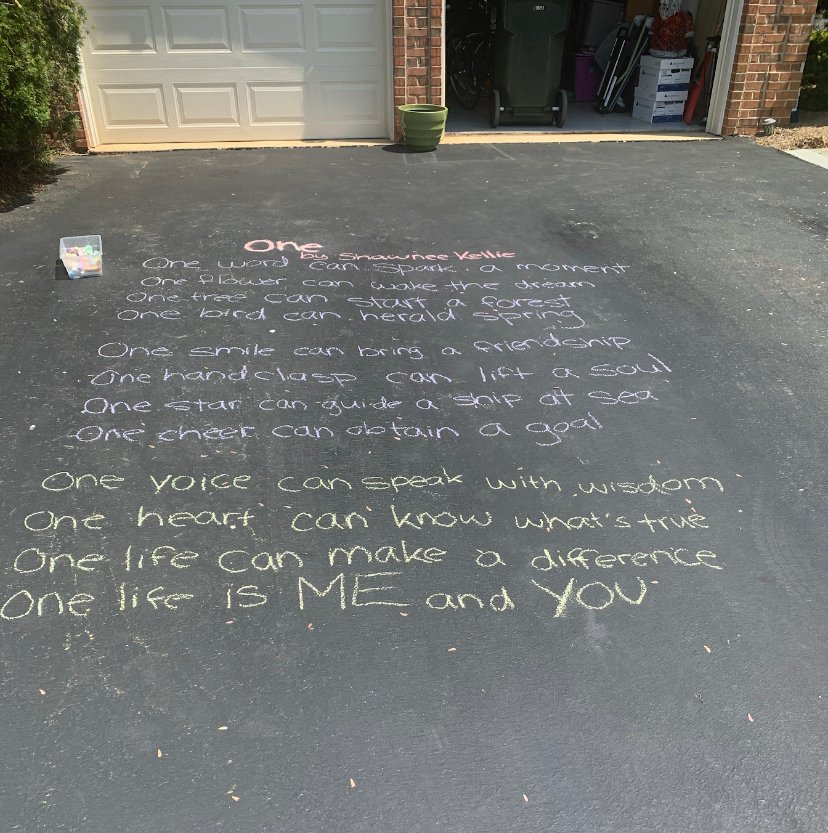 One
by Shawnee Kellie
One word can spark a moment
One flower can wake the dream
One tree can start a forest
One bird can herald spring
One smile can bring a friendship
One handclasp can lift a soul
One star can guide a ship at sea
One cheer can obtain a goal
One voice can speak with wisdom
One heart can know what's true
One life can make a difference
One life is ME and YOU